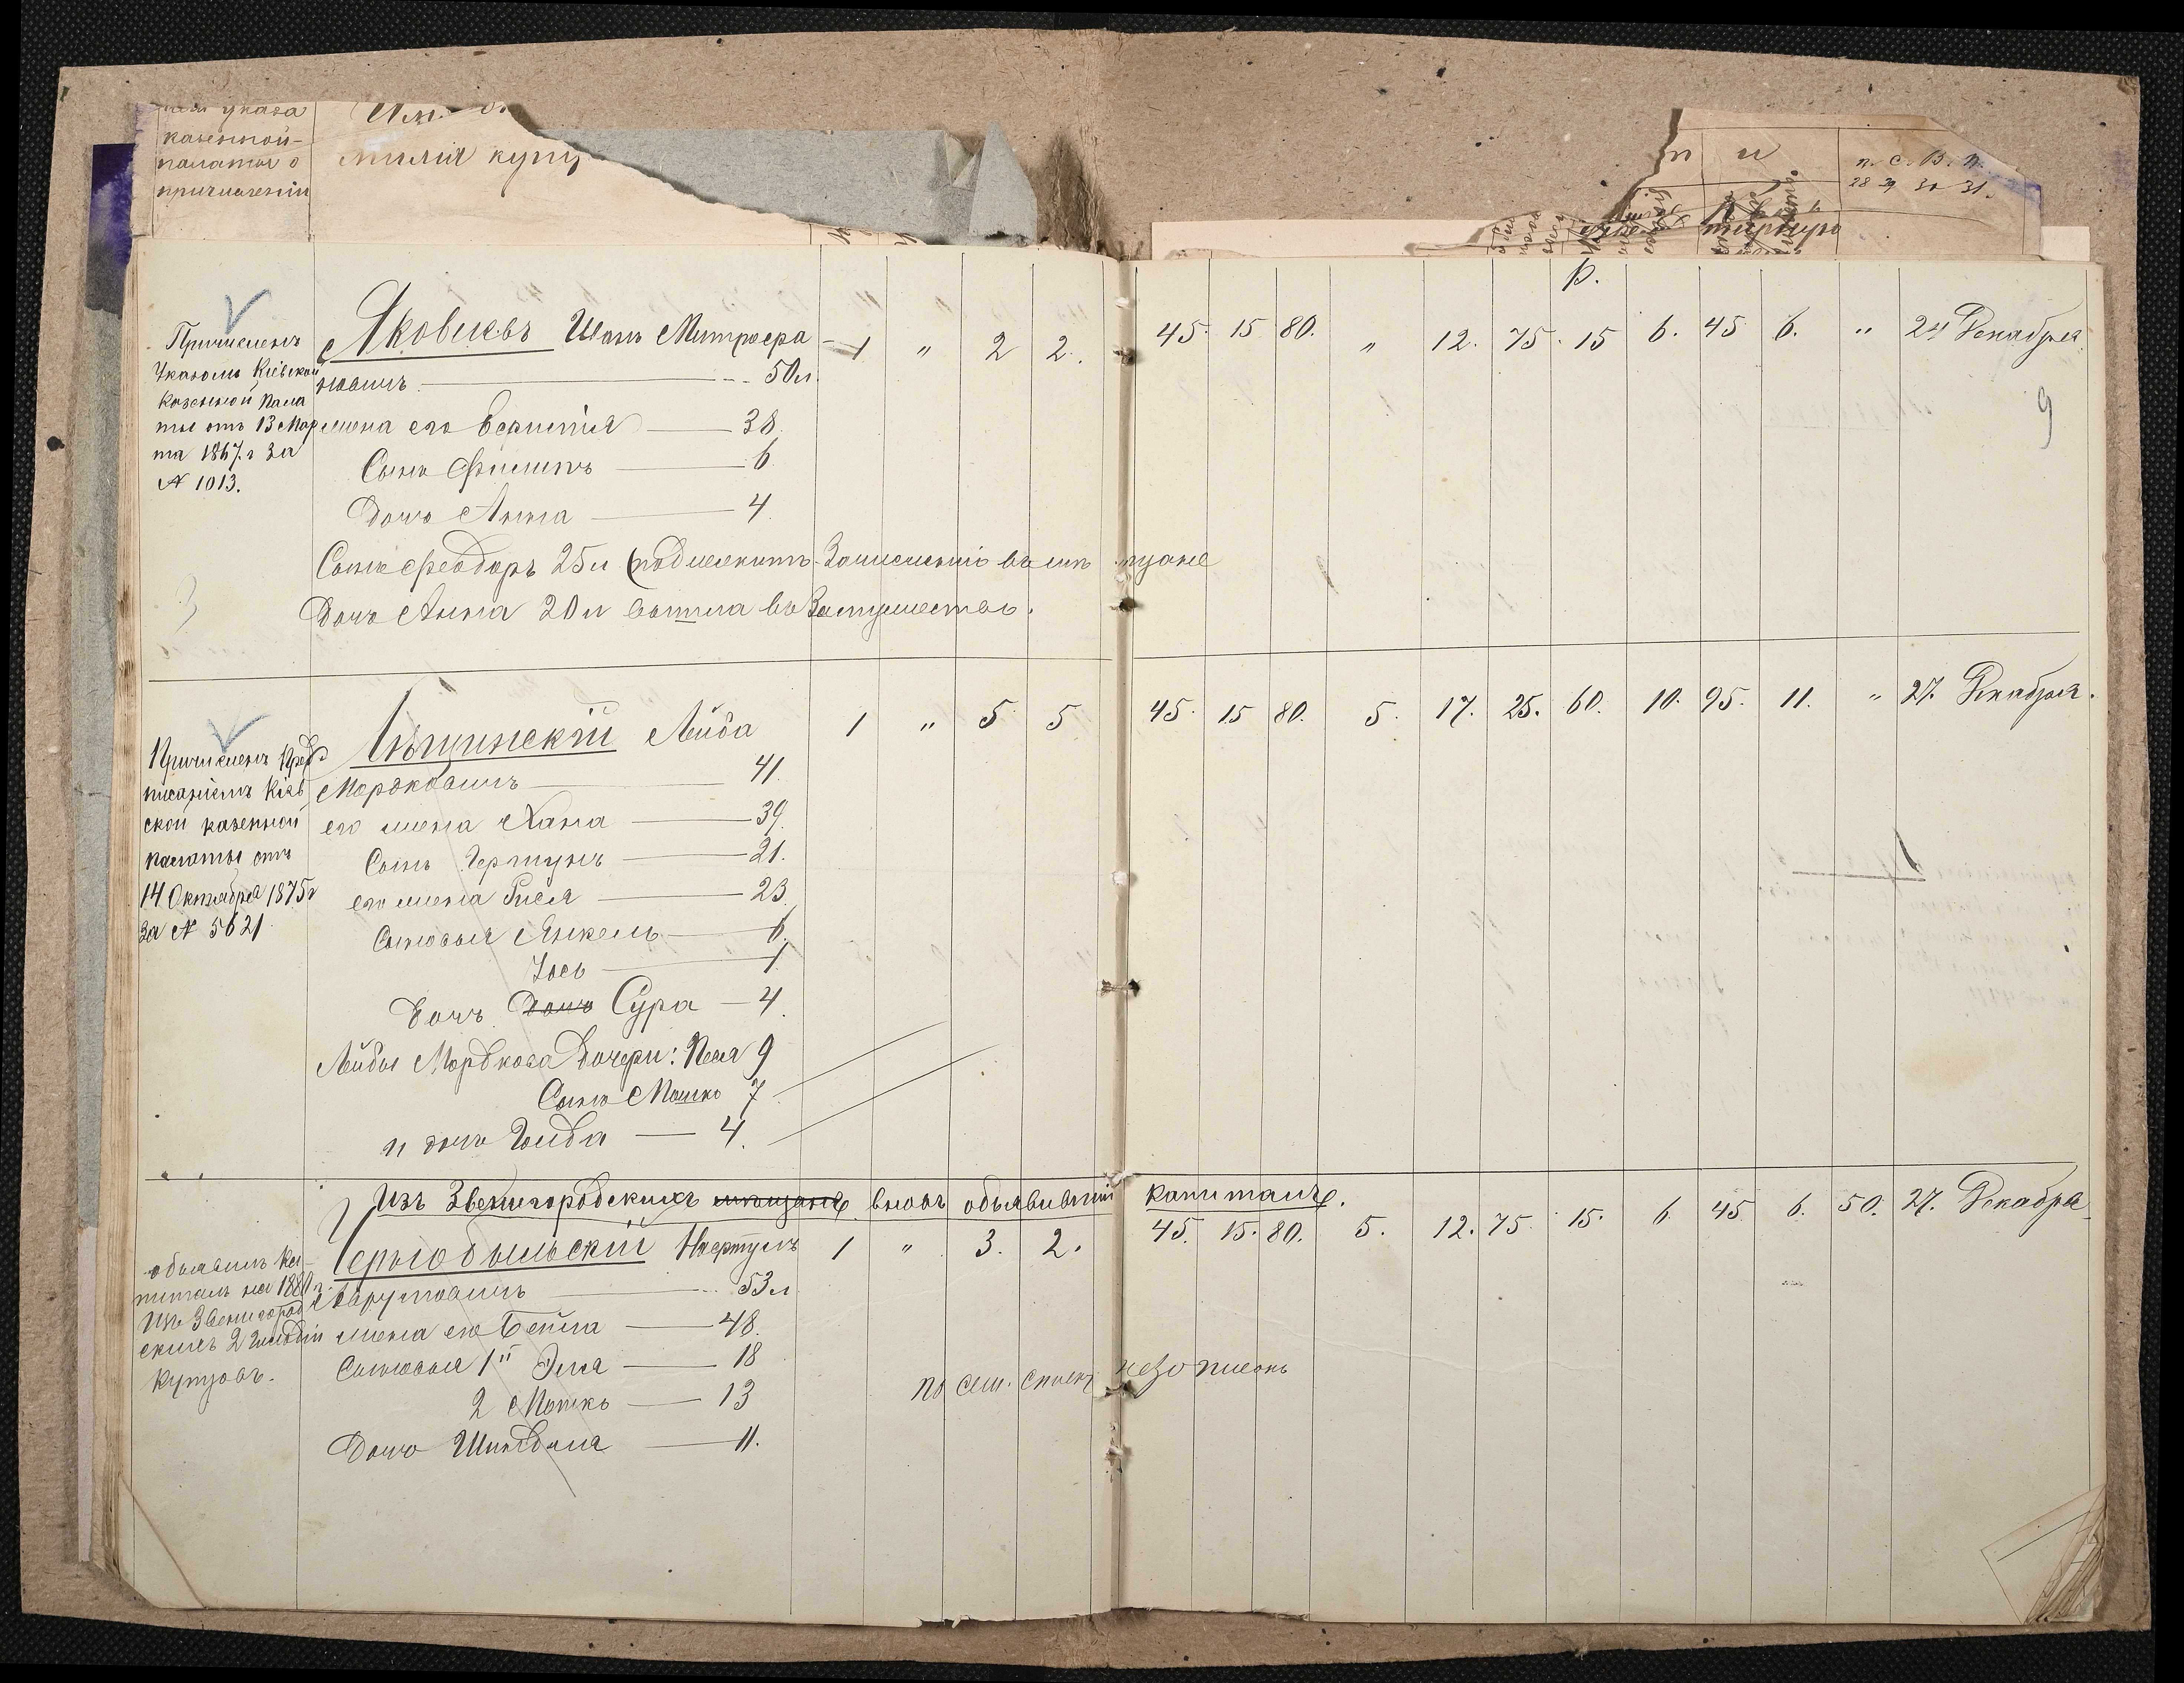 указа
казенной-
палаты о
причислении
милія купц
п и
п. с. в. п.
28 29 30 31.
р.
Причисленъ
Указомъ Кіевской
Казенной Пала
ты отъ 13 Мар
та 1867. г За
№ 1013.
Яковлевъ Иванъ Митрофа
новичъ — 50 л.
жена его Евгенія — 38.
Сынъ Филипъ — 6
Дочь Анна — 4.
Сынъ Феодоръ 25 л (подлежитъ Зачисленію въ мѣщане
Дочь Анна 20 л вышла въ Замужество.
1 " 2 2. 45. 15 80. " 12. 75. 15 6. 45 6. " 24 Декабря
9
Причисленъ Пред
писаніемъ Кіев
ской казенной
палаты отъ
14 Октября 1875 г
За № 5621
Лѣщинскій Лейба
Мордковичъ — 41
его жена Хана — 39.
Сынъ Гершунъ — 21.
его жена Рися — 23.
Сыновья Янкель — 6.
Іось — 1
Дочь Дочь Сура — 4.
Лейбы Мордкова дочери: Песя 9
Сынъ Мошко 7
и дочь Голда — 4.
1 " 5 5 45. 15 80. 5. 17. 25. 60. 10. 95. 11. " 27. Декабря.
Изъ Звенигородскихъ мѣщанъ вновь объявившій капиталъ.
объявилъ Ка-
питалъ на 1880 г.
Изъ Звенигород
скихъ 2 гильдіи
Купцовъ.
Чернобыльскій
— 53 л
жена его Бейла — 48.
Сыновья 1й Элья — 18
2 Мошко — 13
Дочь — 11.
1 " 3. 2. 45. 15. 80. 5. 12. 75. 15. 6. 45 6. 50. 27. Декабря
по сем. списк